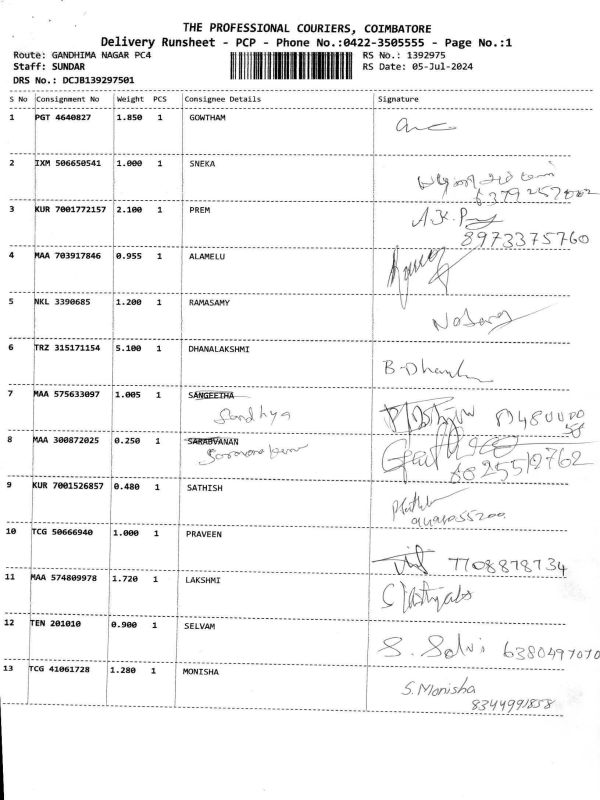 THE PROFESSIONAL COURIERS, COIMBATORE
Delivery Runsheet - PCP - Phone No.:0422-3505555 - Page No.:1
Route: GANDHIMA NAGAR PC4 RS No.: 1392975
Staff: SUNDAR RS Date: 05-Jul-2024
DRS No.: DCJB139297501
S No Consignment No Weight PCS Consignee Details Signature
1 PGT 4640827 1.850 1 GOWTHAM
2 IXM 506650541 1.000 1 SNEKA
3 KUR 7001772157 2.100 1 PREM
A.K.P
8973375760
4 MAA 703917846 0.955 1 ALAMELU
5 NKL 3390685 1.200 1 RAMASAMY
6 TRZ 315171154 5.100 1 DHANALAKSHMI
B-Dhanal
7 MAA 575633097 1.005 1 SANGEETHA
Sandhya
8 MAA 300872025 0.250 1 SARABVANAN
9 KUR 7001526857 0.480 1 SATHISH
10 TCG 50666940 1.000 1 PRAVEEN
7708878734
11 MAA 574809978 1.720 1 LAKSHMI
12 TEN 201010 0.900 1 SELVAM
S. Selvi 6380497070
13 TCG 41061728 1.280 1 MONISHA
S. Monisha
8344991858